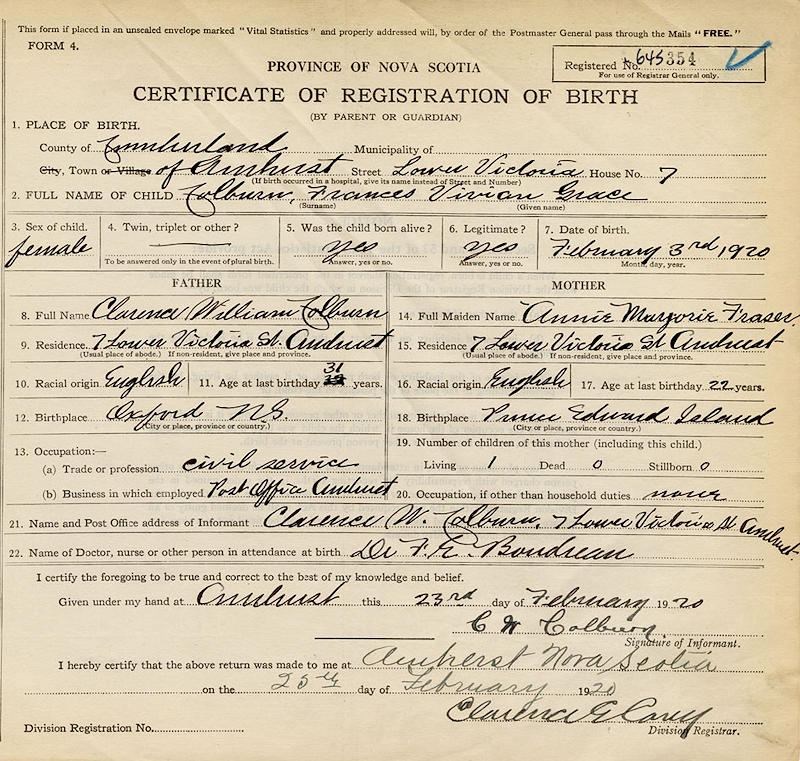 This form if placed in an unsealed envelope marked "Vital Statistics" and properly addressed will, by order of the Postmaster General pass through the Mails "FREE."
FORM 4.
Registered No. 645354
For use of Registrar General only.
PROVINCE OF NOVA SCOTIA
CERTIFICATE OF REGISTRATION OF BIRTH
(BY PARENT OR GUARDIAN)
1. PLACE OF BIRTH.
County of Cumberland Municipality of
City, Town or Village of Amherst Street Lower Victoria House No. 7
(If birth occurred in a hospital, give its name instead of Street and Number)
2. FULL NAME OF CHILD Colburn, Frances Vivian Grace
(Surname) (Given name)
3. Sex of child. 4. Twin, triplet or other? 5. Was the child born alive? 6. Legitimate? 7. Date of birth.
female yes yes February 3rd, 1920
To be answered only in the event of plural birth. Answer, yes or no. Answer, yes or no. Month, day, year.
FATHER MOTHER
8. Full Name Clarence William Colburn 14. Full Maiden Name Annie Marjorie Fraser
9. Residence 7 Lower Victoria St. Amherst 15. Residence 7 Lower Victoria St Amherst
(Usual place of abode.) If non-resident, give place and province. (Usual place of abode.) If non-resident, give place and province.
10. Racial origin English 11. Age at last birthday 31 years. 16. Racial origin English 17. Age at last birthday 22 years.
12. Birthplace Oxford N.S. 18. Birthplace Prince Edward Island
(City or place, province or country.) (City or place, province or country.)
19. Number of children of this mother (including this child.)
13. Occupation:—
(a) Trade or profession civil service Living 1 Dead 0 Stillborn 0
(b) Business in which employed Post Office Amherst 20. Occupation, if other than household duties none
21. Name and Post Office address of Informant Clarence W. Colburn, 7 Lower Victoria St Amherst
22. Name of Doctor, nurse or other person in attendance at birth Dr F. E. Boudreau
I certify the foregoing to be true and correct to the best of my knowledge and belief.
Given under my hand at Amherst this 23rd day of February 1920
C W Colburn
Signature of Informant.
I hereby certify that the above return was made to me at Amherst Nova Scotia
on the 25th day of February 1920
Clarence E Casey
Division Registration No. Division Registrar.